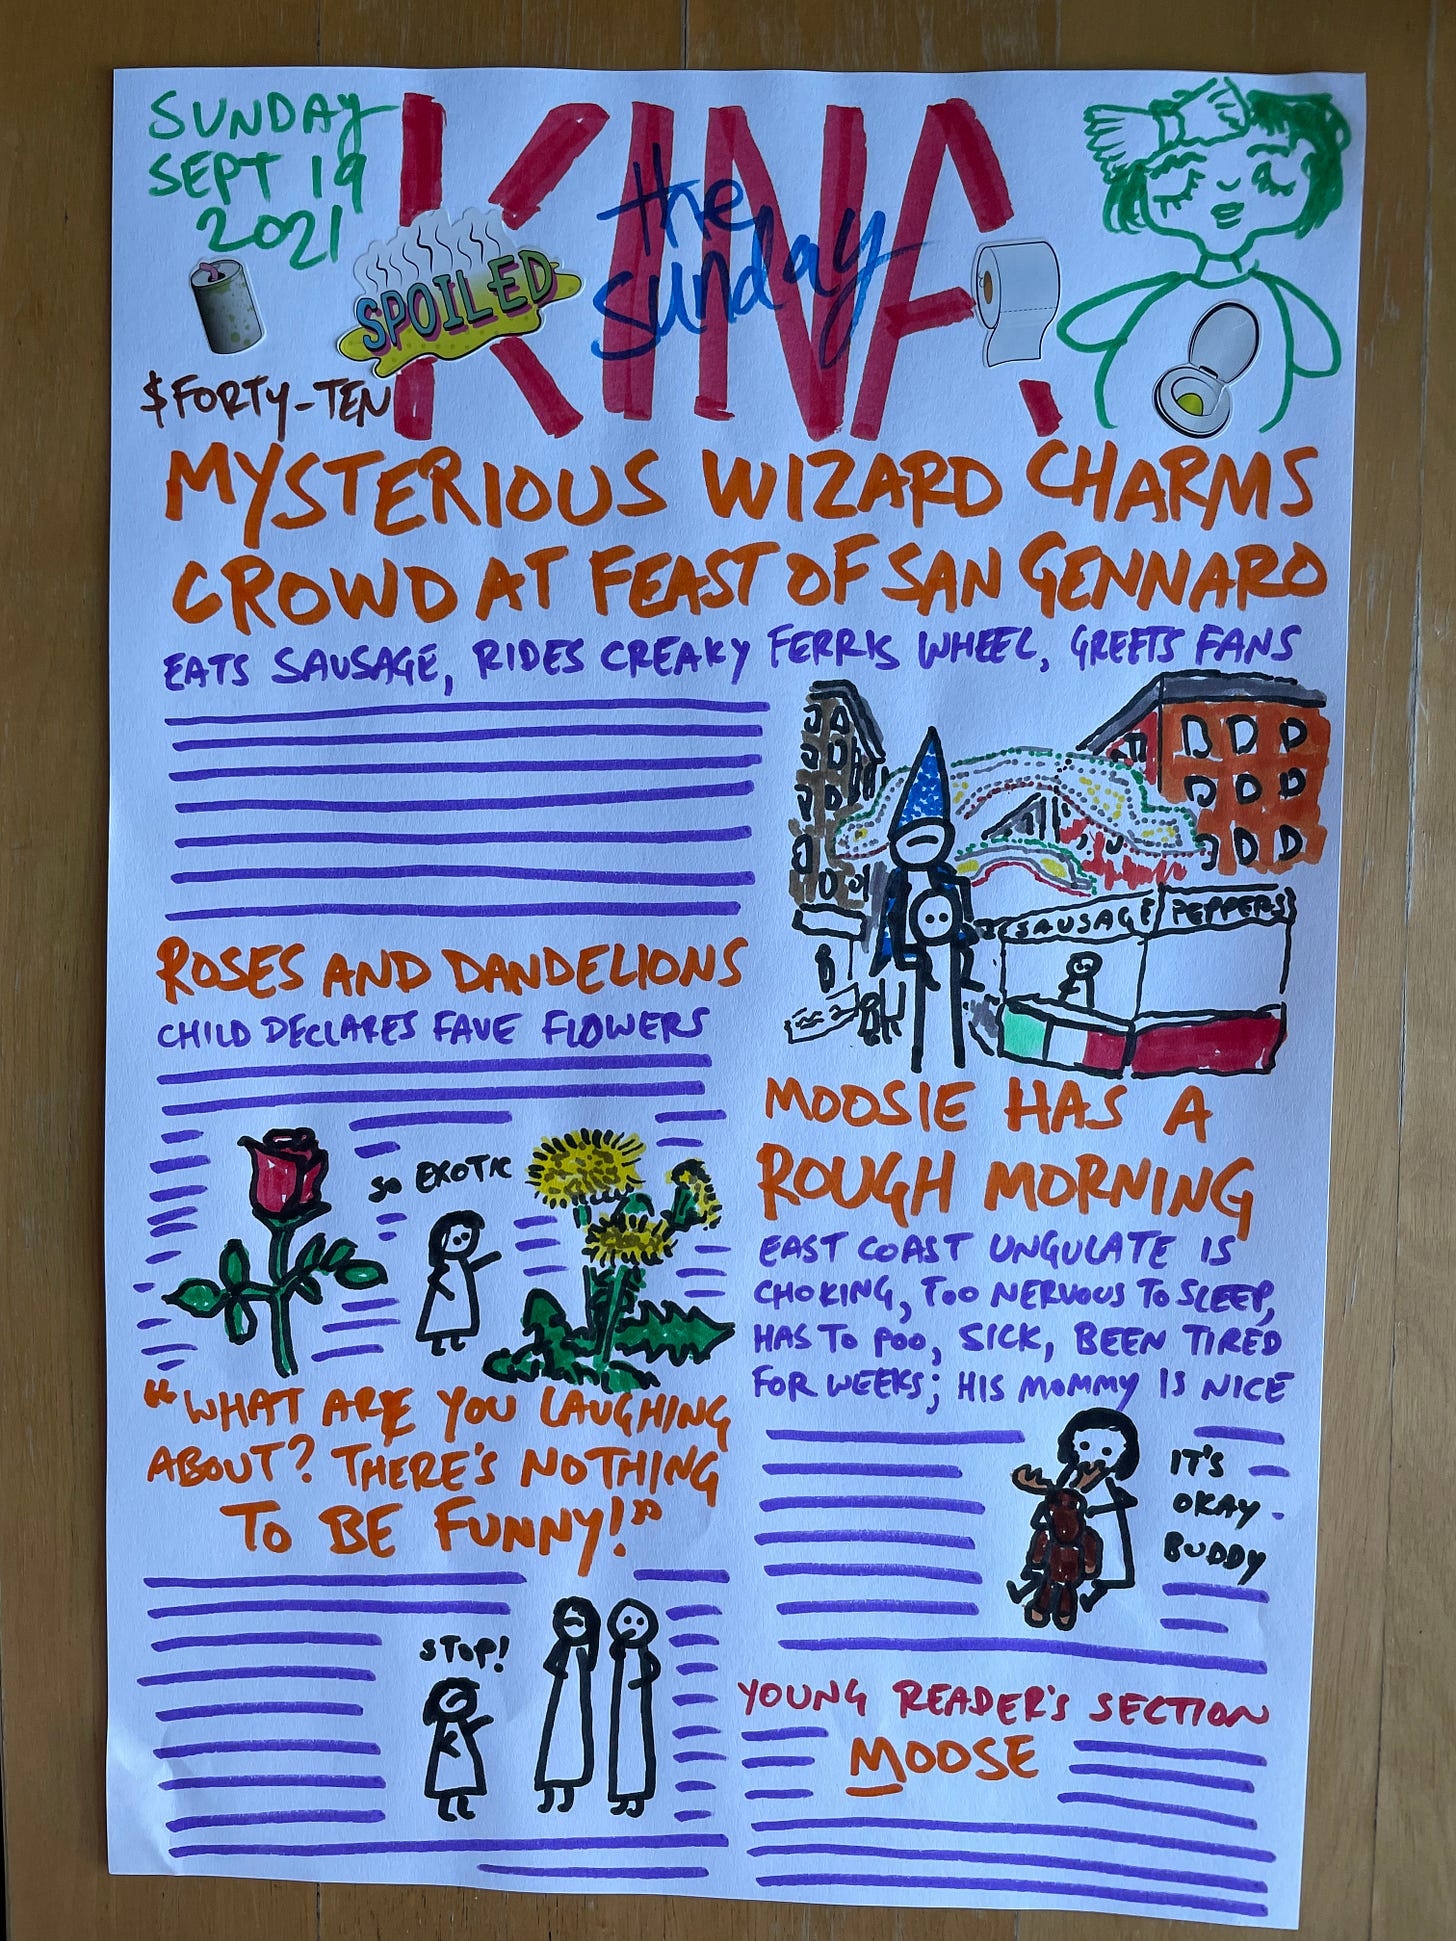 SUNDAY
SEPT 19
2021
KINA
the
sunday
SPOILED
$FORTY-TEN
MYSTERIOUS WIZARD CHARMS
CROWD AT FEAST OF SAN GENNARO
EATS SAUSAGE, RIDES CREAKY FERRIS WHEEL, GREETS FANS
SAUSAGE PEPPERS
ROSES AND DANDELIONS
CHILD DECLARES FAVE FLOWERS
SO EXOTIC
"WHAT ARE YOU LAUGHING
ABOUT? THERE'S NOTHING
TO BE FUNNY!"
STOP!
MOOSIE HAS A
ROUGH MORNING
EAST COAST UNGULATE IS
CHOKING, TOO NERVOUS TO SLEEP,
HAS TO POO, SICK, BEEN TIRED
FOR WEEKS; HIS MOMMY IS NICE
IT'S
OKAY
BUDDY
YOUNG READER'S SECTION
MOOSE